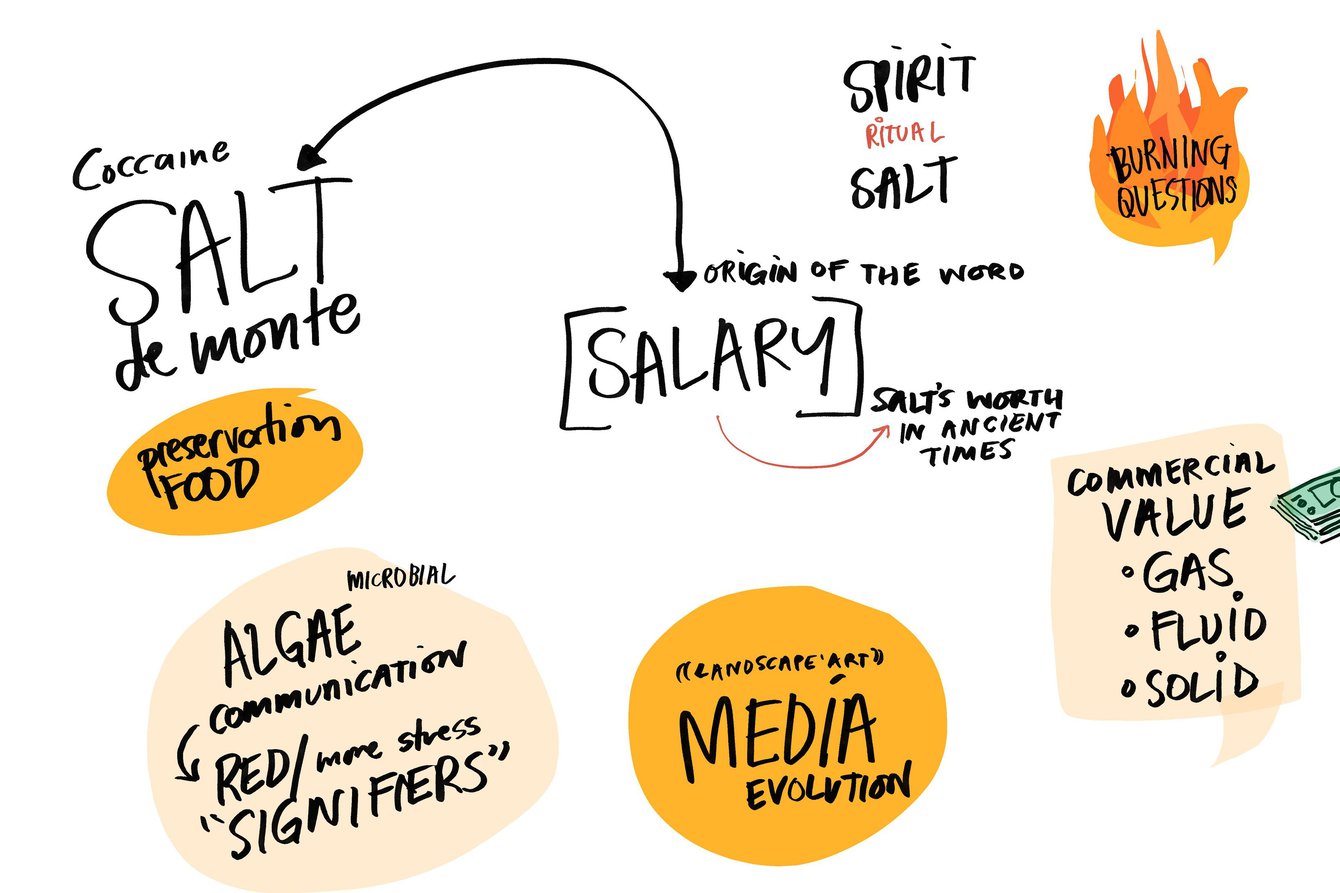 Coccaine
SALT
de monte
preservation
FOOD
SPIRIT
RITUAL
SALT
BURNING
QUESTIONS
ORIGIN OF THE WORD
[SALARY]
SALT'S WORTH
IN ANCIENT
TIMES
COMMERCIAL
VALUE
• GAS
• FLUID
• SOLID
MICROBIAL
ALGAE
communication
RED/more stress
"SIGNIFIERS"
"LANDSCAPE'ART"
MEDIA
EVOLUTION